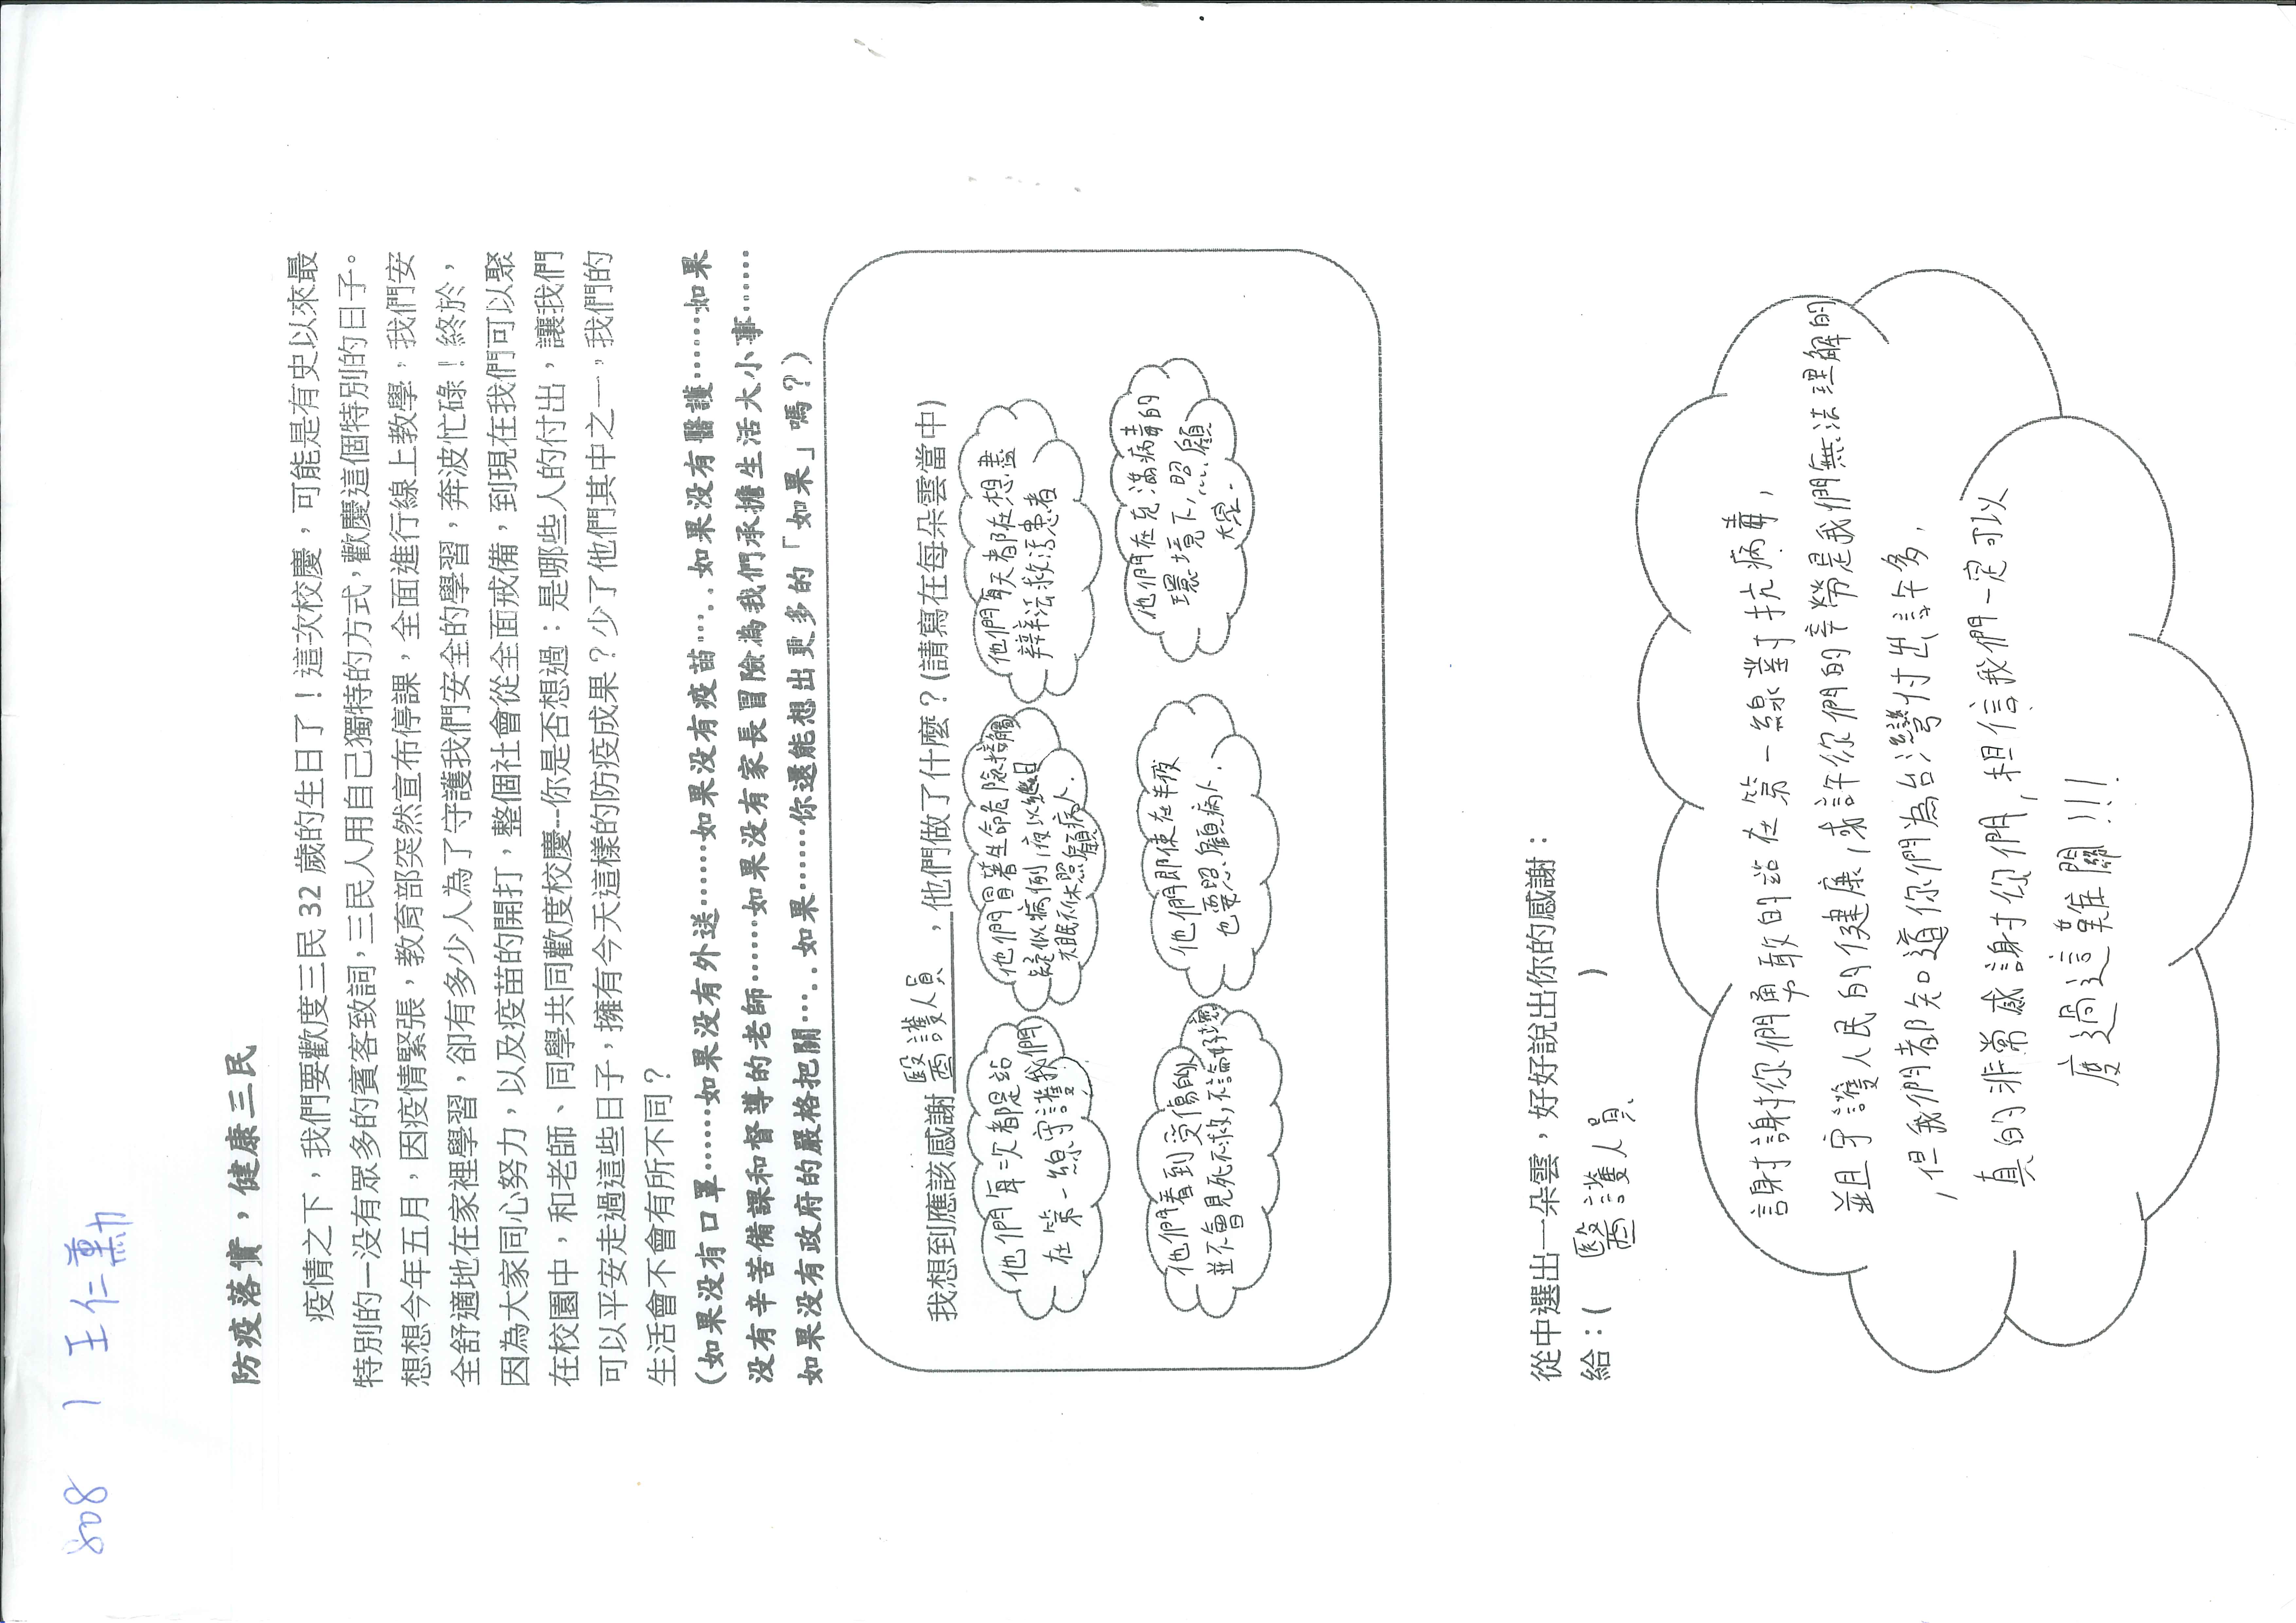 808 1 王仁勳
防疫落實，健康三民
疫情之下，我們要歡度三民 32 歲的生日了！這次校慶，可能是有史以來最
特別的－沒有眾多的賓客致詞，三民人用自己獨特的方式，歡慶這個特別的日子。
想想今年五月，因疫情緊張，教育部突然宣布停課，全面進行線上教學，我們安
全舒適地在家裡學習，卻有多少人為了守護我們安全的學習，奔波忙碌！終於，
因為大家同心努力，以及疫苗的開打，整個社會從全面戒備，到現在我們可以聚
在校園中，和老師、同學共同歡度校慶---你是否想過：是哪些人的付出，讓我們
可以平安走過這些日子，擁有今天這樣的防疫成果？少了他們其中之一，我們的
生活會不會有所不同？
(如果沒有口罩……如果沒有外送……如果沒有疫苗…..如果沒有醫護……如果
沒有辛苦備課和督導的老師……如果沒有家長冒險為我們承擔生活大小事……
如果沒有政府的嚴格把關…..如果……你還能想出更多的「如果」嗎？)
我想到應該感謝 醫護人員 ，他們做了什麼？(請寫在每朵雲當中)
他們每次都是站
在第一線守護我們
他們冒著生命危險接觸
疑似病例，夜以繼日
不眠不休照顧病人．
他們每天都在想盡
辦法救活患者
他們看到受傷的人
並不會見死不救，不論好壞
他們即使在半夜
也要照顧病人．
他們在充滿病毒的
環境下，照顧
大家．
從中選出一朵雲，好好說出你的感謝：
給：( 醫護人員 )
謝謝你們勇敢的站在第一線對抗病毒，
並且守護人民的健康，或許你們的辛勞是我們無法理解的
，但我們都知道你們為台灣付出許多，
真的非常感謝你們，相信我們一定可以
度過這難關！！！